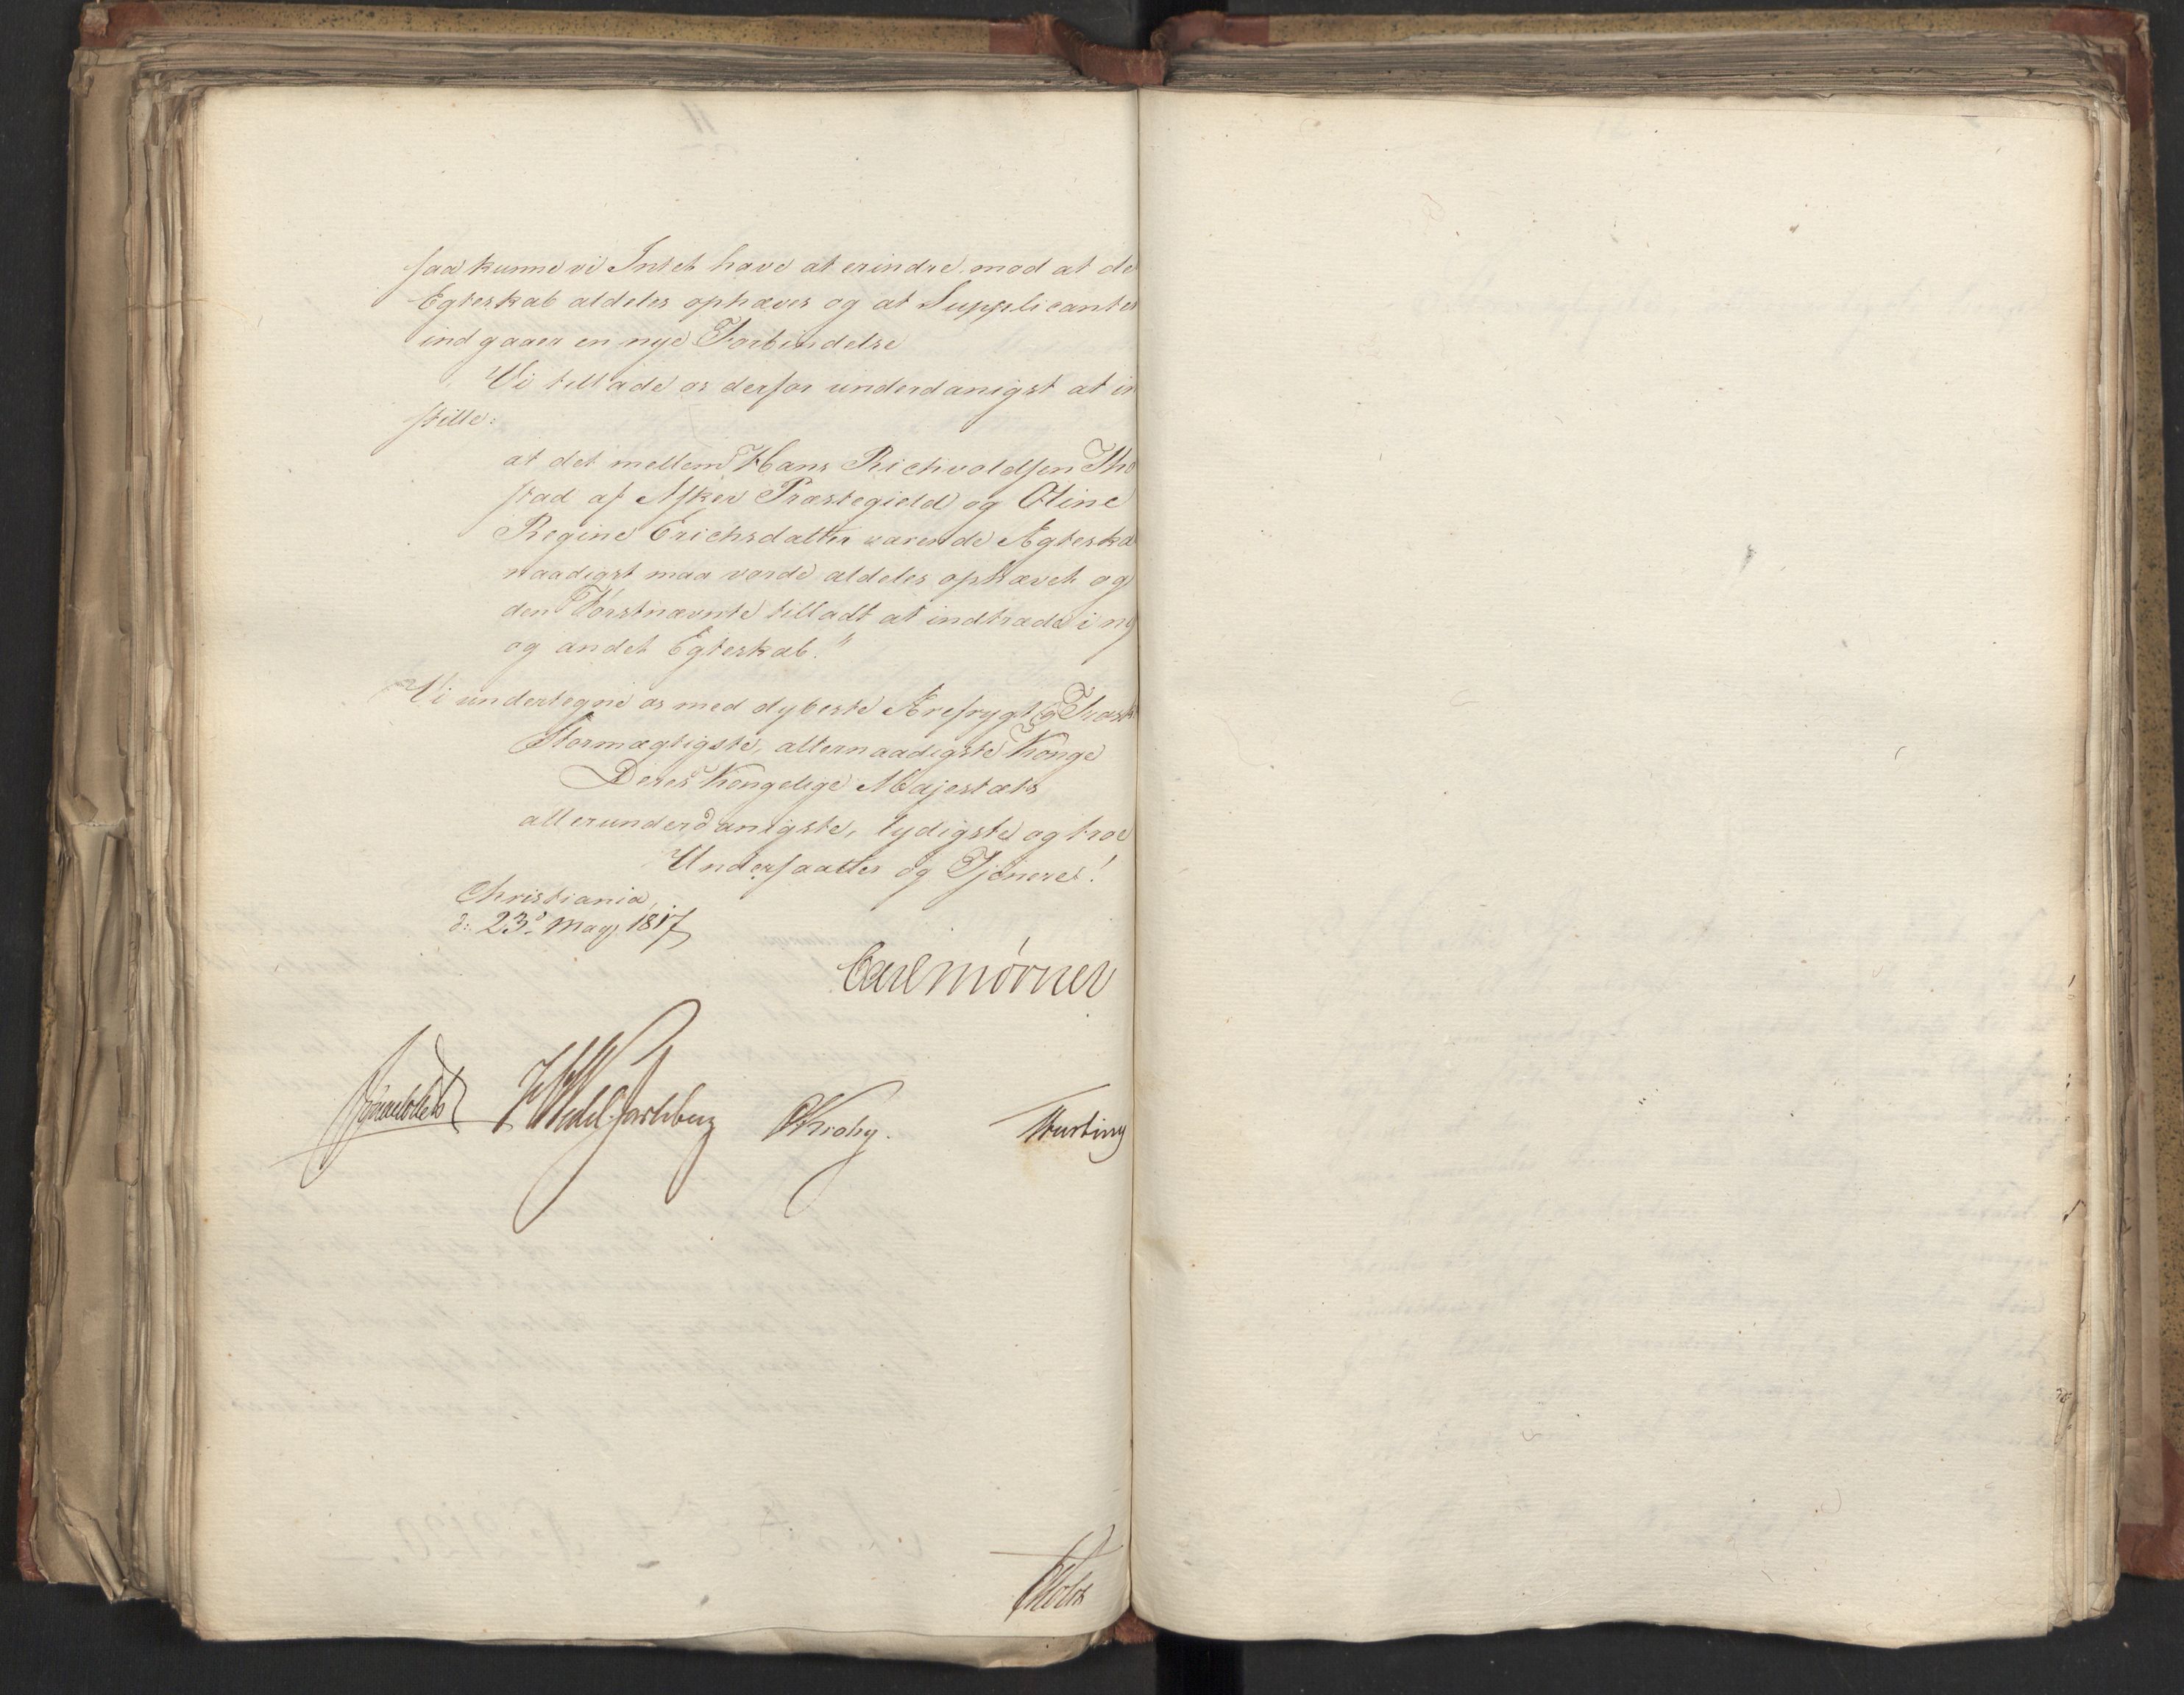 saa kunne vi Intet have at erindre mod at de
Egteskab aldeles ophæves og at Supplicante
indgaaer en nye Forbindelse
Vi tillade os derfor underdanigst at in
stille:
at det mellem Hans Richvoldsen Tho
stad af Asker Præstegield og Oline
Regine Erichsdatter værende Ægteska
naadigst maa vorde aldeles ophævet og
den Førstnævnte tilladt at indtræde i ny
og andet Egteskab."
Vi undertegne os med dybeste Ærefrygt og Trosk
Stormægtigste, allernaadigste Konge
Deres Kongelige Majestæts
allerunderdanigste, lydigste og troe
Undersaatter og Tjenere!
Christiania,
d: 23d May 1817
Carl Mörner
Sommerhielm HWedel Jarlsberg CKrohg.
Holst